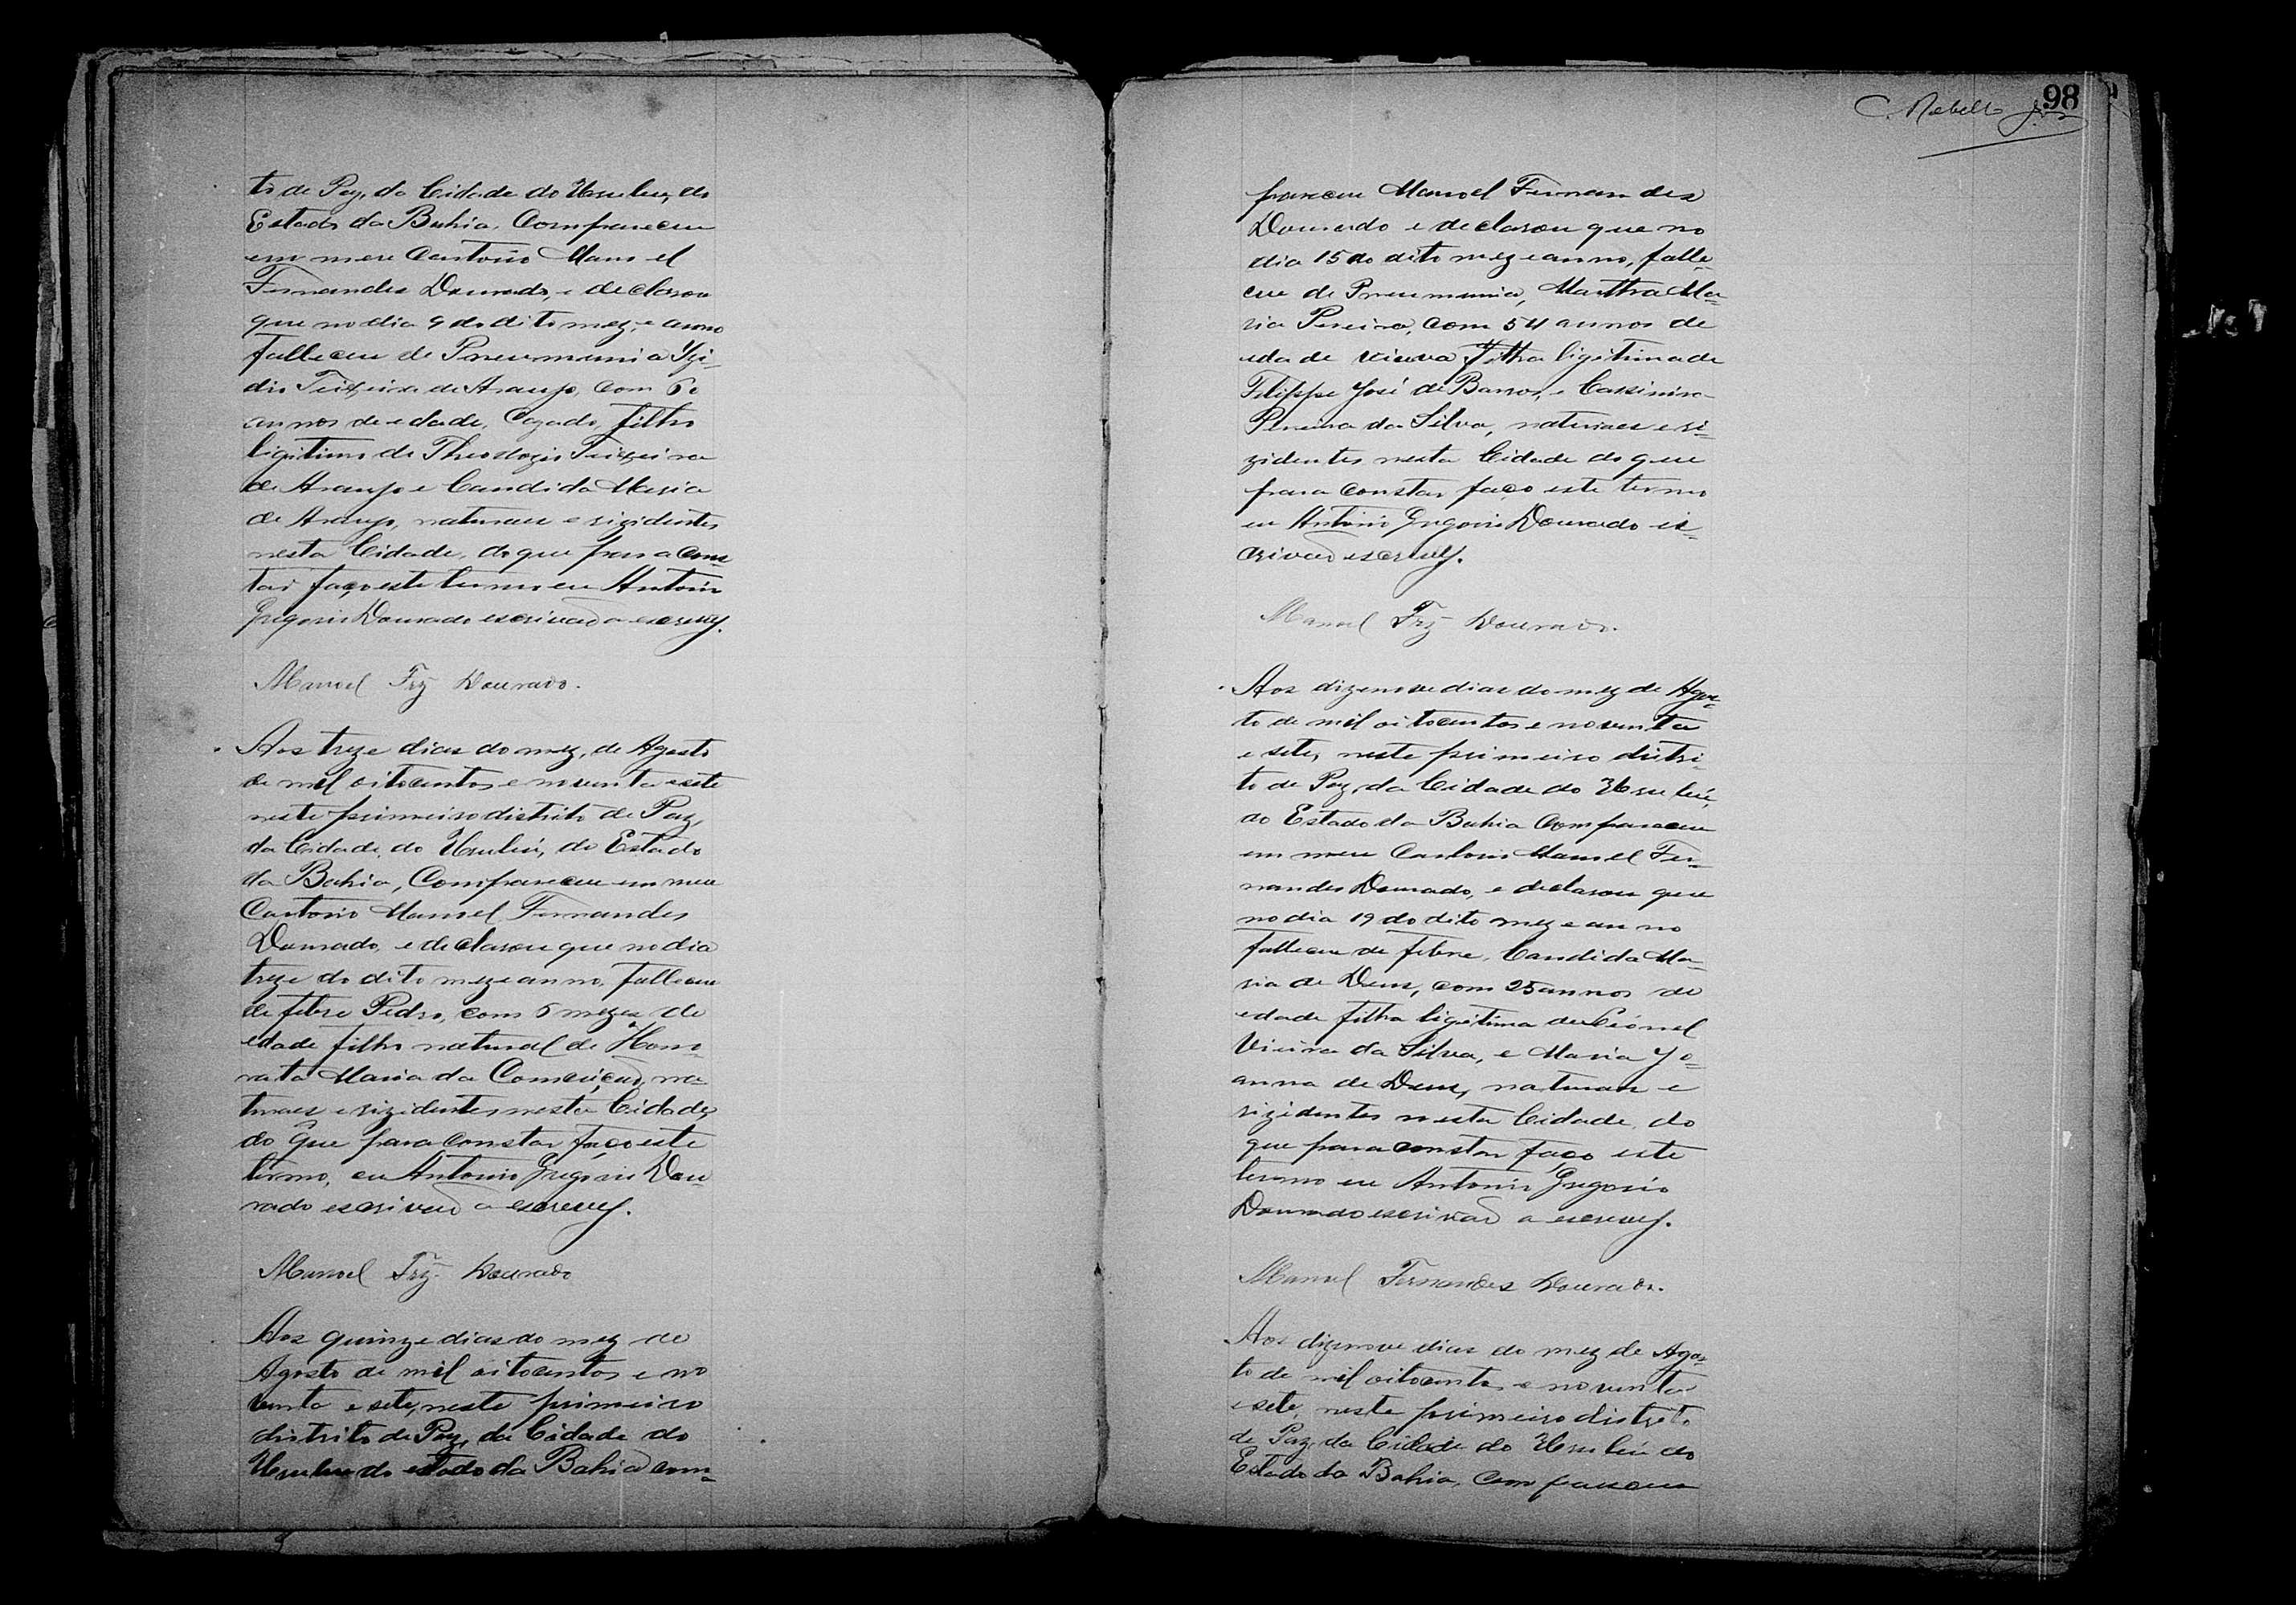 to de Paz, da Cidade do Urubu, do
Estado da Bahia, Compareceu
em meu Cartorio Manoel
Fernandes Dourado, e declarou
que no dia 9 do dito mez, e anno
falleceu de Pneumunia Igi-
dio Teixeira de Araujo, com 60
annos de edade, Cazado, filho
ligitimo de Theologio Teixeira
de Araujo e Candida Maria
de Araujo, naturaes e rizidentes
nesta Cidade, do que para cons-
tar faço este termo eu Antonio
Gregorio Dourado escrivaõ o escrevy.
Manoel Frz Dourado.
Aos treze dias do mez, de Agosto
de mil oitocentos e noventa e sete
neste primeiro distrito de Paz,
da Cidade do Urubú, do Estado
da Bahia, Compareceu em meu
Cartorio Manoel Fernandes
Dourado, e declarou que no dia
treze do dito mez e anno, falleceu
de febre Pedro, com 6 mezes de
edade filho natural de Hono-
rata Maria da Conceiçaõ, na-
turaes e rizidentes nesta Cidade,
do que para constar faço este
termo, eu Antonio Gregorio Dou-
rado escrivaõ o escrevy.
Manoel Frz Dourado
Aos quinze dias do mez de
Agosto de mil oitocentos e no
venta e sete, neste primeiro
distrito de Paz, da Cidade do
Urubu do estado da Bahia com-
98
C. Rebello
pareceu Manoel Fernandes
Dourado e declarou que no
dia 15 do dito mez e anno, falle-
ceu de Pneumunia, Marthra Ma-
ria Pereira, com 54 annos de
eda de viuva, filha ligitima de
Filippe José de Barros, e Cassimira
Pereira da Silva, naturaes e ri-
zidentes nesta Cidade do que
para constar faço este termo
eu Antonio Gregorio Dourado es-
crivaõ escrevy.
Manoel Frz Dourado.
Aos dizenove dias do mez de Agos-
to de mil oitocentos e noventa
e sete, neste primeiro distri-
to de Paz, da Cidade do Urubú,
do Estado da Bahia Compareceu
em meu Cartorio Manoel Fer-
nandes Dourado, e declarou que
no dia 19 do dito mez e anno
falleceu de febre, Candida Ma-
ria de Deus, com 25 annos de
edade filha ligitima de Leonel
Vieira da Silva, e Maria Jo-
anna de Deus, naturaes e
rizidentes nesta Cidade, do
que para constar faço este
termo eu Antonio Gregorio
Dourado escrivaõ o escrevy.
Manoel Fernandes Dourado.
Aos dizenove dias do mez de Agos-
to de mil oitocentos e noventa
e sete, neste primeiro distrito
de Paz, da Cidade do Urubú do
Estado da Bahia, Compareceu